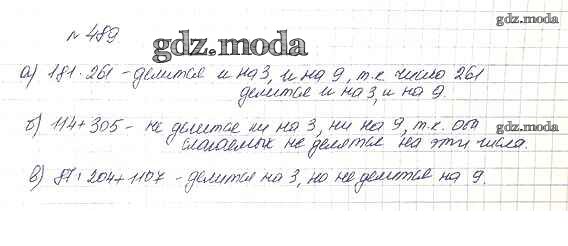 № 489
gdz.moda
а) 181 · 261 - делится и на 3, и на 9, т.к. число 261
gdz.moda
делится и на 3, и на 9.
б) 114 + 305 - не делится ни на 3, ни на 9, т.к. оба
gdz.moda
слагаемых не делятся на эти числа.
в) 87 · 204 + 1107 - делится на 3, но не делится на 9.